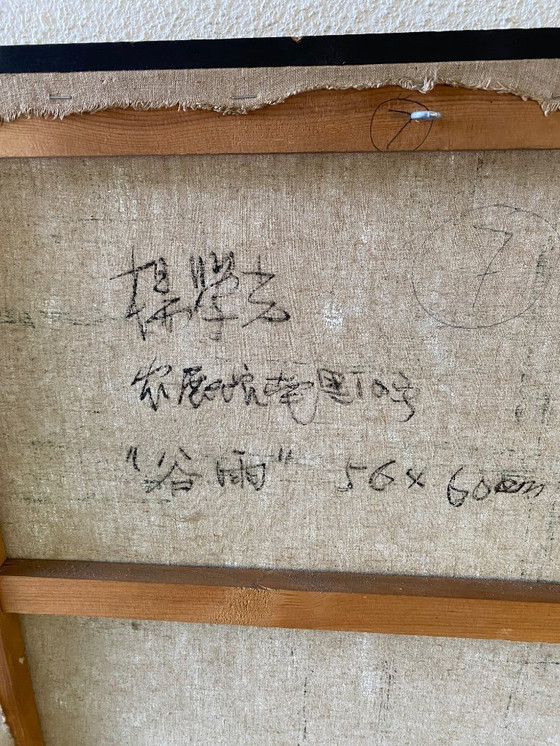 7
7
杨学光
农展馆南里10号
"谷雨" 56×60cm